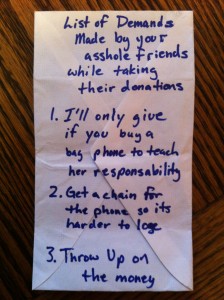 List of Demands
Made by your
asshole friends
while taking
their donations
1. I'll only give
if you buy a
bag phone to teach
her responsability
2. Get a chain for
the phone so its
harder to lose
3. Throw Up on
the money